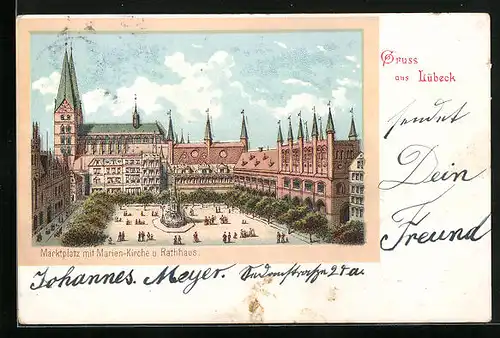 Gruss
aus Lübeck
sendet
Dein
Freund
Marktplatz mit Marien-Kirche u. Rathhaus.
Johannes. Meyer.